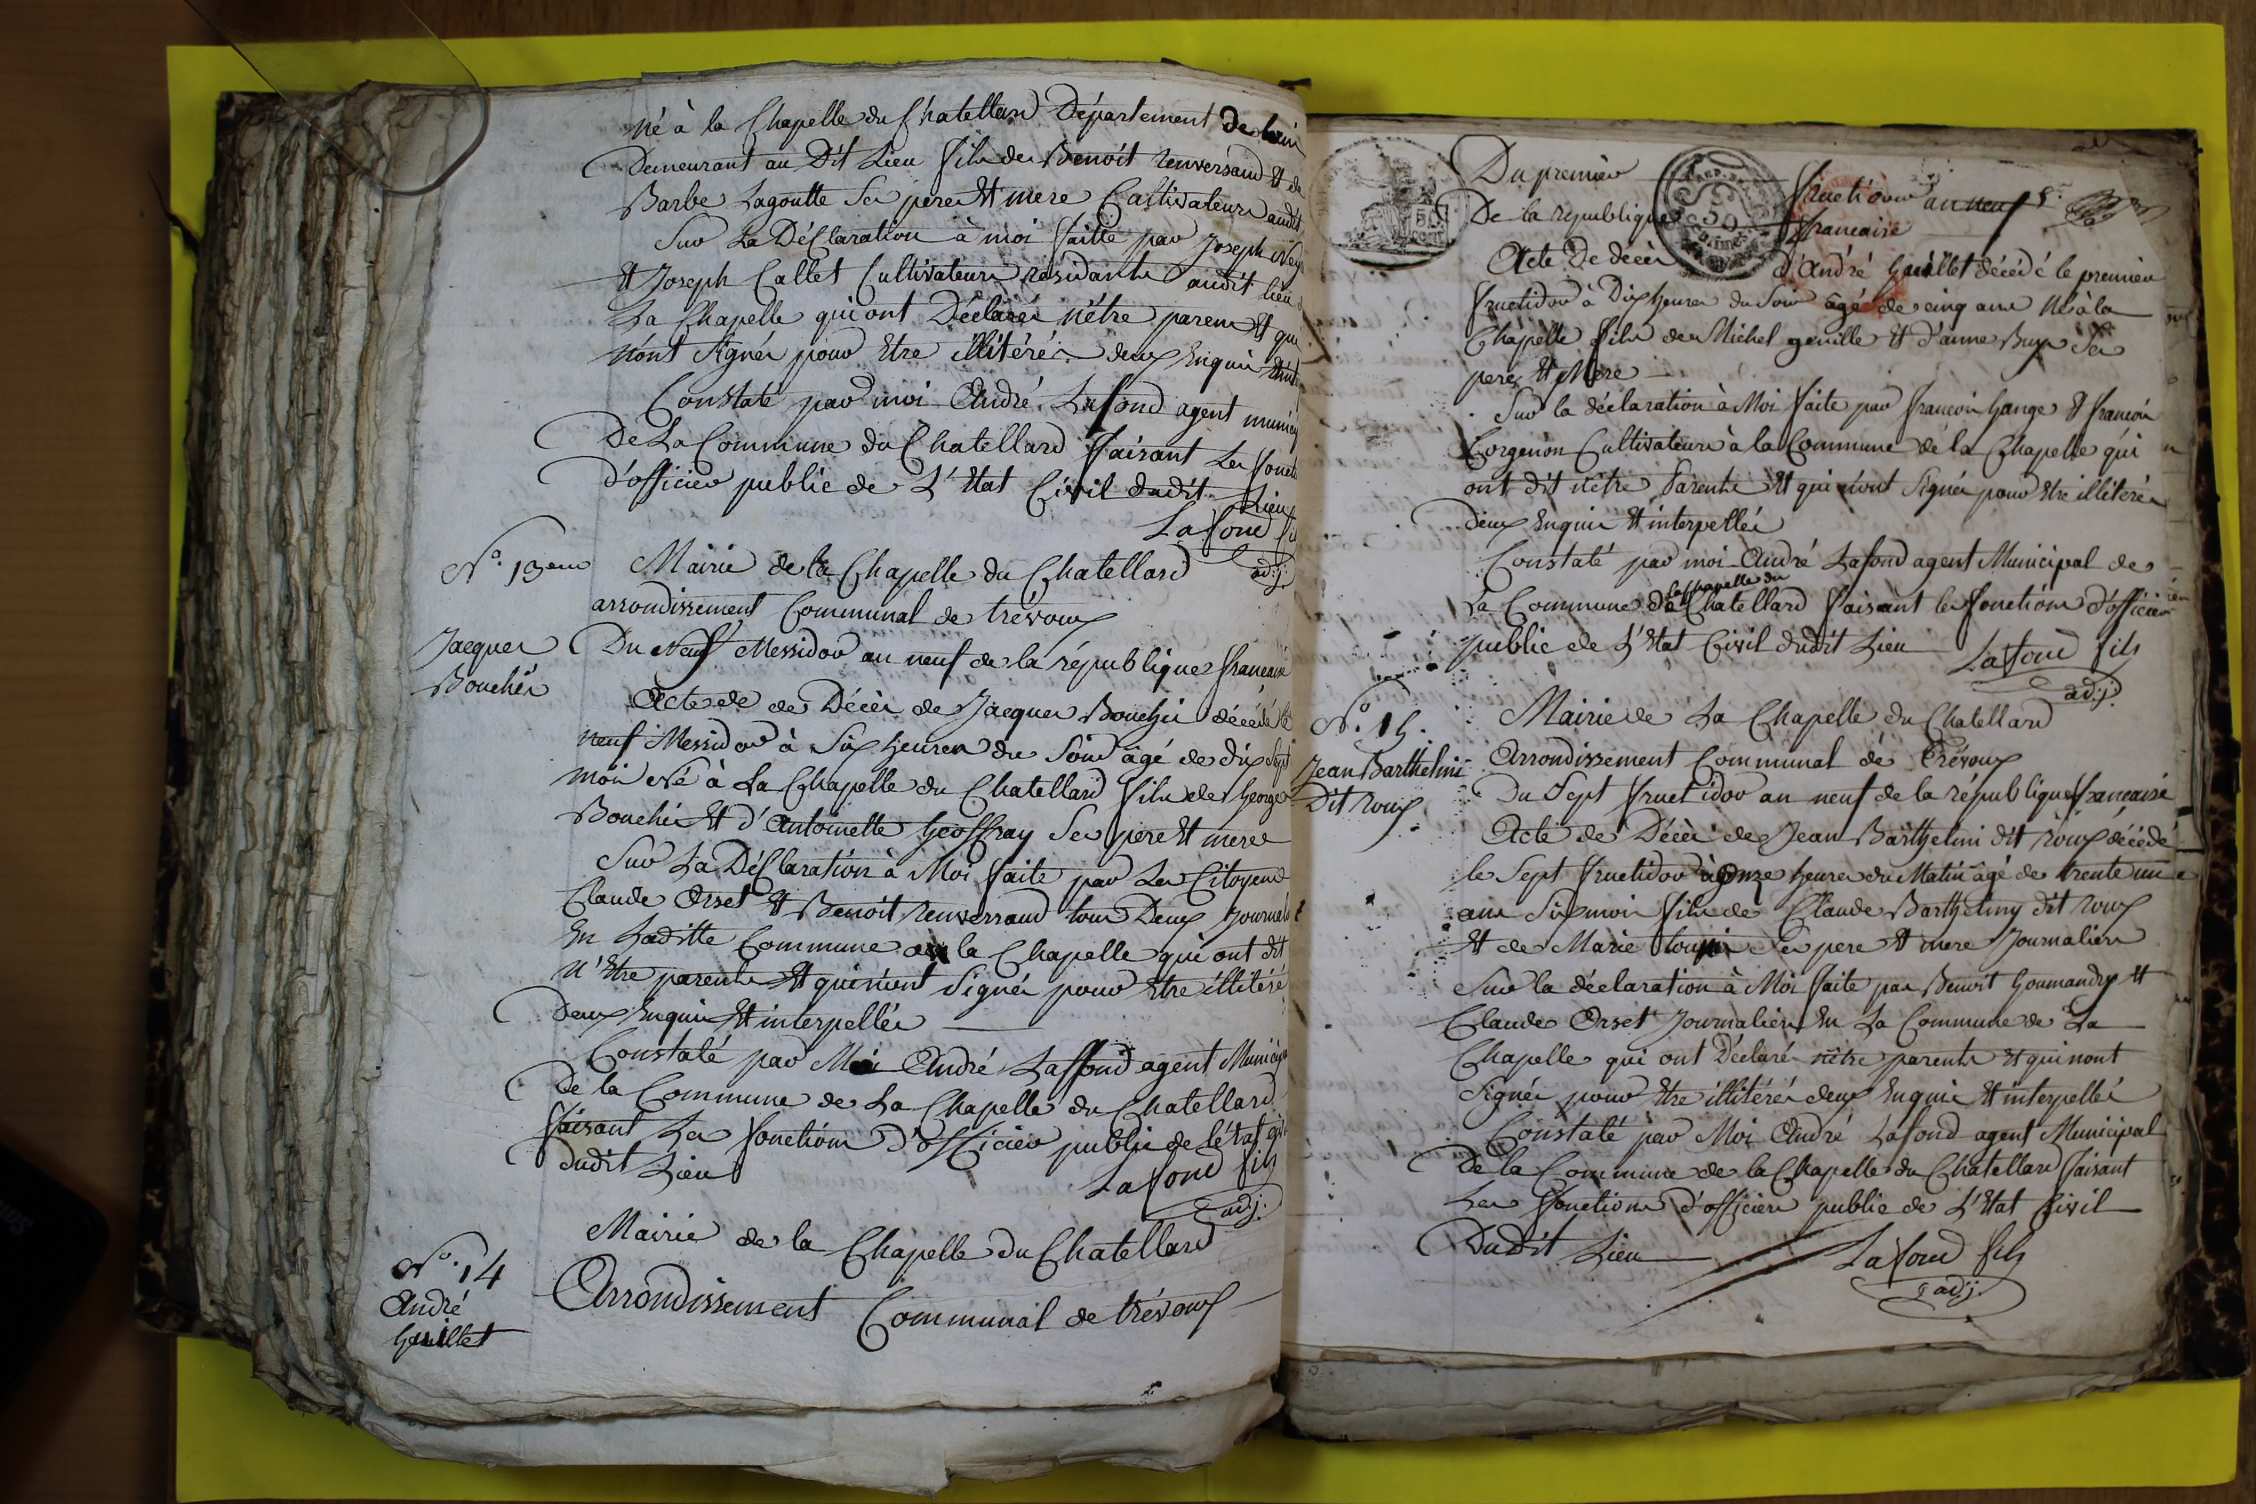 né à la Chapelle du Chatellard Département De lain
Demeurant au Dit Lieu fils de Benoit Renversand et de
Barbe Lagoutte Ses pere et mere Cultivateurs audit
Sur La Déclaration à moi faitte par Joseph
et Joseph Callet Cultivateurs residants audit lieu
La Chapelle qui ont Déclarés n'être parens et qui
n'ont signés pour Etre illitérés deux Enquis
Constaté par moi André Lafond agent munici
De La Commune du Chatellard faisant Les fonct
d'officier public de L'Etat Civil dudit Lieu
Lafond
adj.
N.º 13eme
Mairie de la Chapelle du Chatellard
arrondissement Communal de trévoux
Jacques
Bouchés
Du Neuf Messidor an neuf de la république francaise
Acte de de Décès de Jacques Bouchés décédé le
neuf Messidor à Six heures du Soir âgé de dix sept
mois Né à La Chapelle du Chatellard fils de George
Bouchés et d'Antoinette Geoffray Ses pere et mere
Sur La Déclaration à Moi faite par Les Citoyens
Claude Orset et Benoit Renversand tous Deux Journal
En Laditte Commune de la Chapelle qui ont dit
N'Etre parents et qui n'ont Signés pour Etre illitéré
Deux Enquis et interpellés
Constaté par Moi André Laffond agent Municip
De la Commune de La Chapelle du Chatellard
faisant Les fonctions D'officier public de l'état
dudit Lieu
Lafond fils
adj.
Mairie de la Chapelle du Chatellard
N.º 14
André
Guillet
Arrondissement Communal de trévoux
Du premier fructidor an neuf
De la république francaise
Acte De décès d'André Guillet décédé le premier
fructidor à Dix heures du Soir âgé de cinq ans Né à la
Chapelle fils de Michel genille et d'anne Buys Ses
pere et Mere
Sur la déclaration à Moi faite par francois Gange et francois
Corgenon Cultivateurs à la Commune de la Chapelle qui
ont dit n'être Parents et qui n'ont Signés pour Etre illiterés
deux Enquis et interpellés
Constaté par moi André Lafond agent Municipal de
la Chapelle du
La Commune de Chatellard faisant les fonctions d'officier
public de L'Etat Civil dudit Lieu
Lafond fils
adj.
N.º 15.
Mairie de La Chapelle du Chatellard
Jean Barthelmi
Dit roux
Arrondissement Communal de Trévoux
Du Sept fructidor an neuf de la république francaise
Acte de Décès de Jean Barthelmi dit roux décédé
le Sept fructidor à onze heures du Matin âgé de trente un
ans Six mois fils de Claude Barthelmy dit roux
et de Marie Ses pere et mere Journaliers
Sur la déclaration à Moi faite par Benoit Goumandy et
Claude Orset Journaliers En La Commune de La
Chapelle qui ont Déclaré n'être parents et qui nont
Signés pour Etre illitérés deux Enquis et interpellés
Constaté par Moi André Lafond agent Municipal
De la Commune de la Chapelle du Chatellard faisant
Les fonctions d'officiers public de L'Etat Civil
Dudit Lieu
Lafond fils
adj.